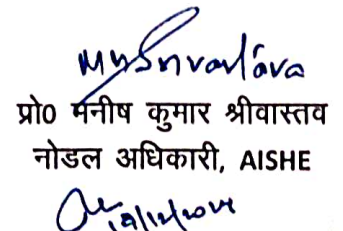 MKSrivastava
प्रो0 मनीष कुमार श्रीवास्तव
नोडल अधिकारी, AISHE